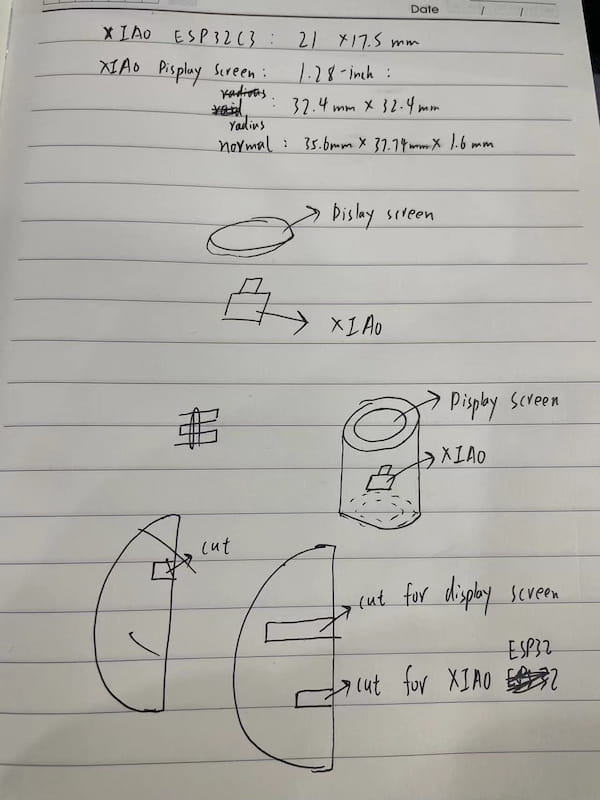 Date / /
XIAO ESP32C3 : 21 × 17.5 mm
XIAO Display Screen : 1.28-inch :
radious
radius : 32.4 mm × 32.4 mm
normal : 35.6mm × 37.74mm × 1.6 mm
Dislay screen
XIAO
Display screen
XIAO
cut
cut for display screen
ESP32
cut for XIAO